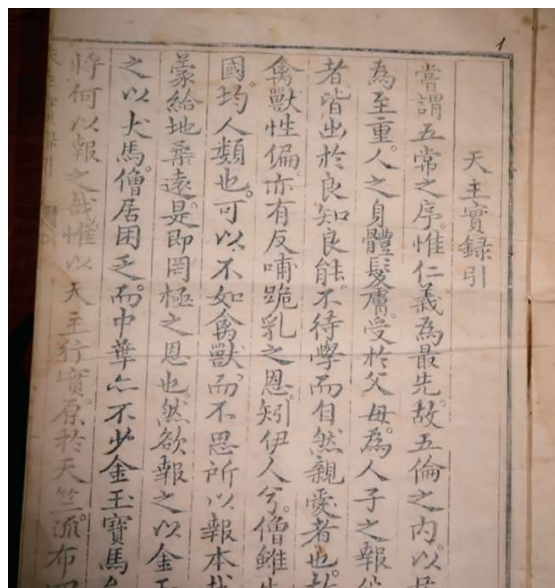 1
天主實錄引
嘗謂五常之序。惟仁義為最先。故五倫之內。以
為至重。人之身體髮膚。受於父母。為人子之報
者。皆出於良知良能。不待學而自然親愛者也。
禽獸性偏。亦有反哺跪乳之恩。矧伊人兮。僧雖
國。均人類也。可以不如禽獸。而不思所以報本
蒙給地 遠。是即罔極之恩也。然欲報之以金
之以犬馬。僧居困乏。而中華亦不少金玉寶馬
將何以報之哉。惟以天主行實。原於天竺。流布四